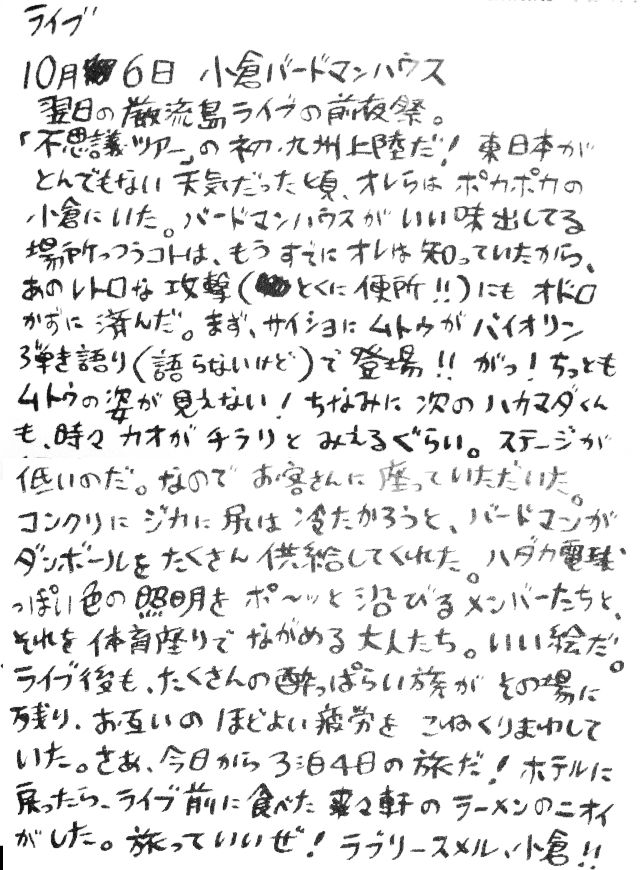 ライブ
10月6日 小倉バードマンハウス
翌日の厳流島ライブの前夜祭。
「不思議ツアー」の初・九州上陸だ! 東日本が
とんでもない天気だった頃、オレらはポカポカの
小倉にいた。バードマンハウスがいい味出してる
場所っつうコトは、もうすでにオレは知っていたから、
あのレトロな攻撃(とくに便所!!)にもオドロ
かずに済んだ。まず、サイショにムトウがバイオリン
弾き語り(語らないけど)で登場!! がっ! ちっとも
ムトウの姿が見えない! ちなみに次のハカマダくん
も、時々カオがチラリとみえるぐらい。ステージが
低いのだ。なのでお客さんに座っていただいた。
コンクリにジカに尻は冷たかろうと、バードマンが
ダンボールをたくさん供給してくれた。ハダカ電球
っぽい色の照明をポ〜ッと浴びるメンバーたちと、
それを体育座りでながめる大人たち。いい絵だ。
ライブ後も、たくさんの酔っぱらい族がその場に
残り、お互いのほどよい疲労をこねくりまわして
いた。さあ、今日から3泊4日の旅だ! ホテルに
戻ったら、ライブ前に食べた来々軒のラーメンのニオイ
がした。旅っていいぜ! ラブリースメル、小倉!!